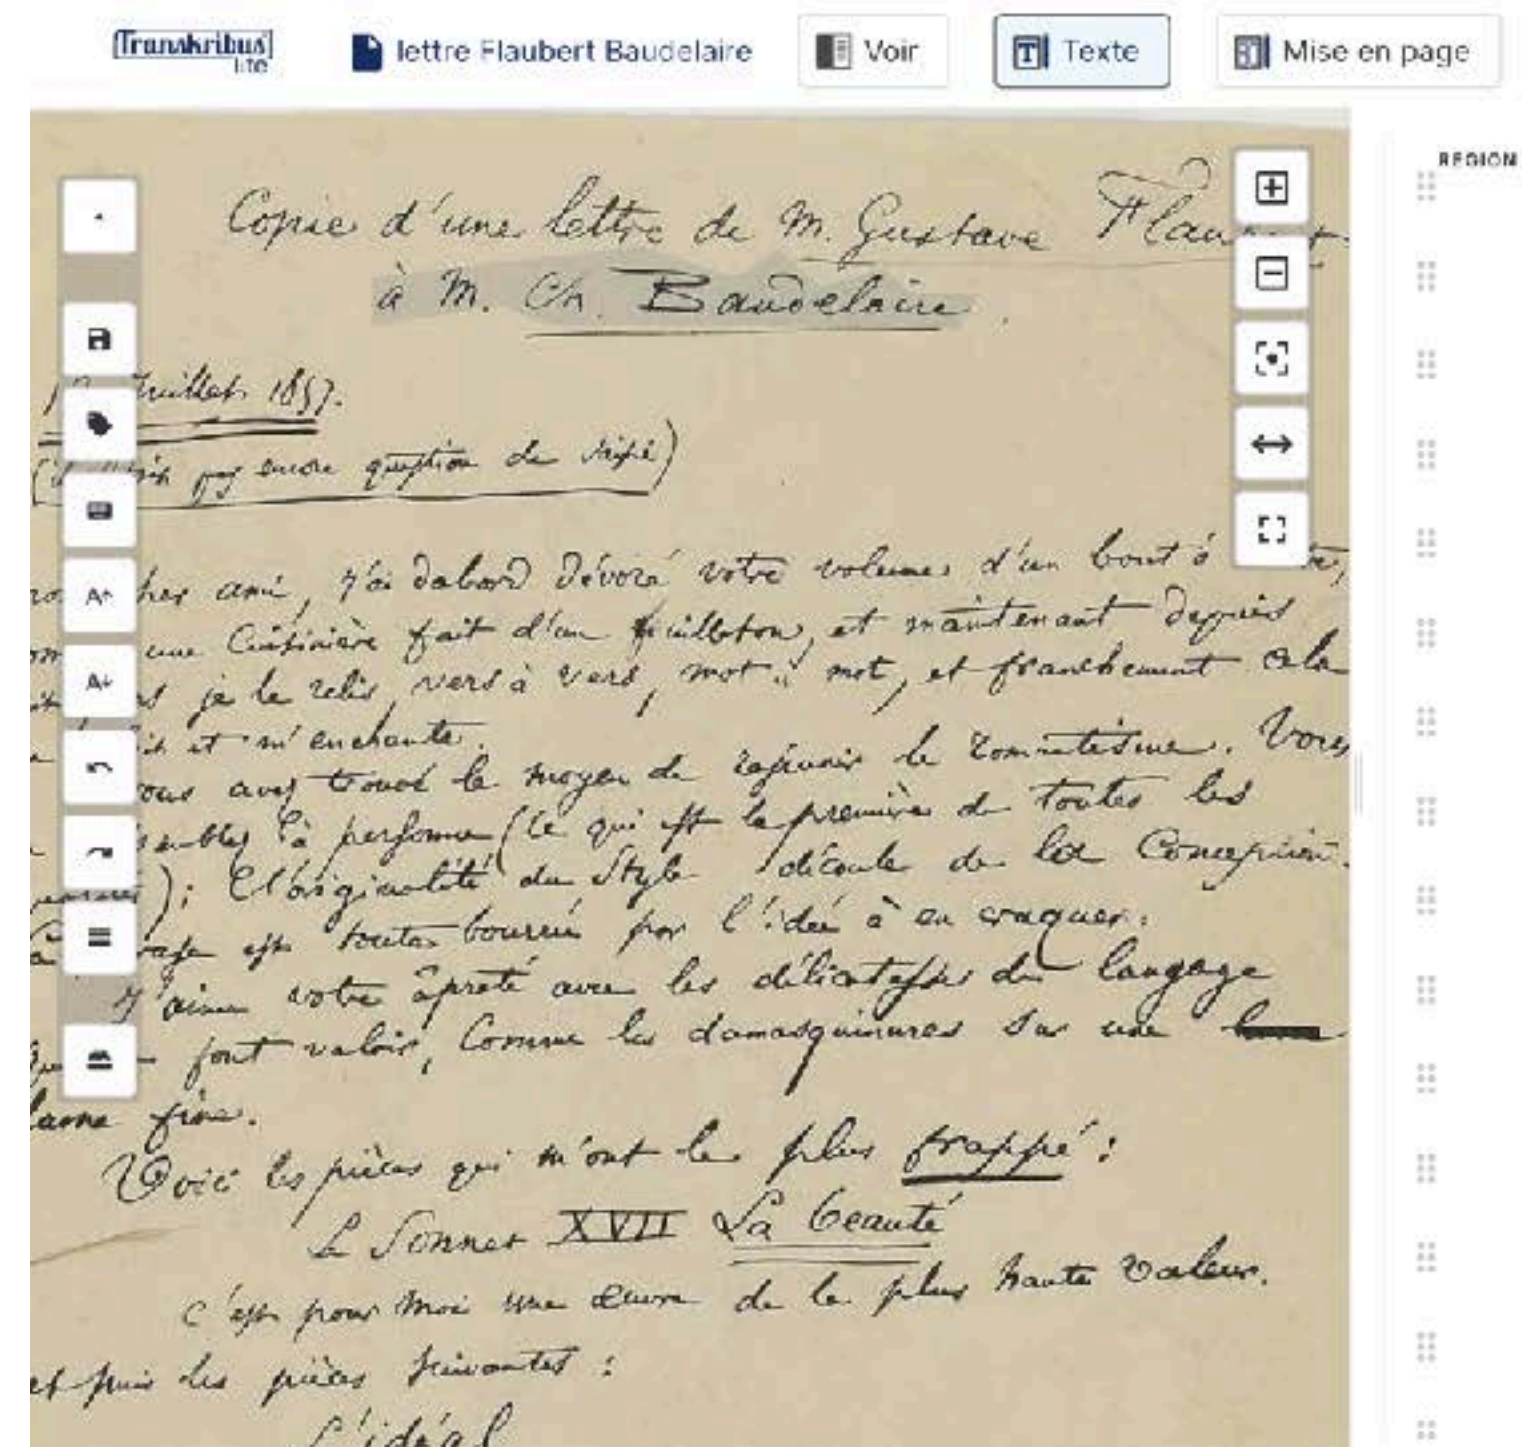 Transkribus
lite
lettre Flaubert Baudelaire
Voir
Texte
Mise en page
REGION
Copie d'une lettre de M. Gustave
à M. Ch. Baudelaire
Juillet 1857.
encore question de saisie)
ami, j'ai dabord dévoré votre volume d'un bout à
une Cuisinière fait d'un feuilleton, et maintenant depuis
je le relis, vers à vers, mot à mot, et franchement cela
et m'enchante.
avez trouvé le moyen de rajeunir le romantisme. Vous
à personne (ce qui est la première de toutes les
); l'originalité du Style découle de la Conception.
est toute bourrée par l'idée à en craquer.
J'aime votre âpreté avec les délicatesses du langage
font valoir, Comme les damasquinures sur une
lame fine.
Voici les pièces qui m'ont le plus frappé :
Le Sonnet XVII La beauté
C'est pour moi une Œuvre de la plus haute valeur.
et puis les pièces suivantes :
L'idéal